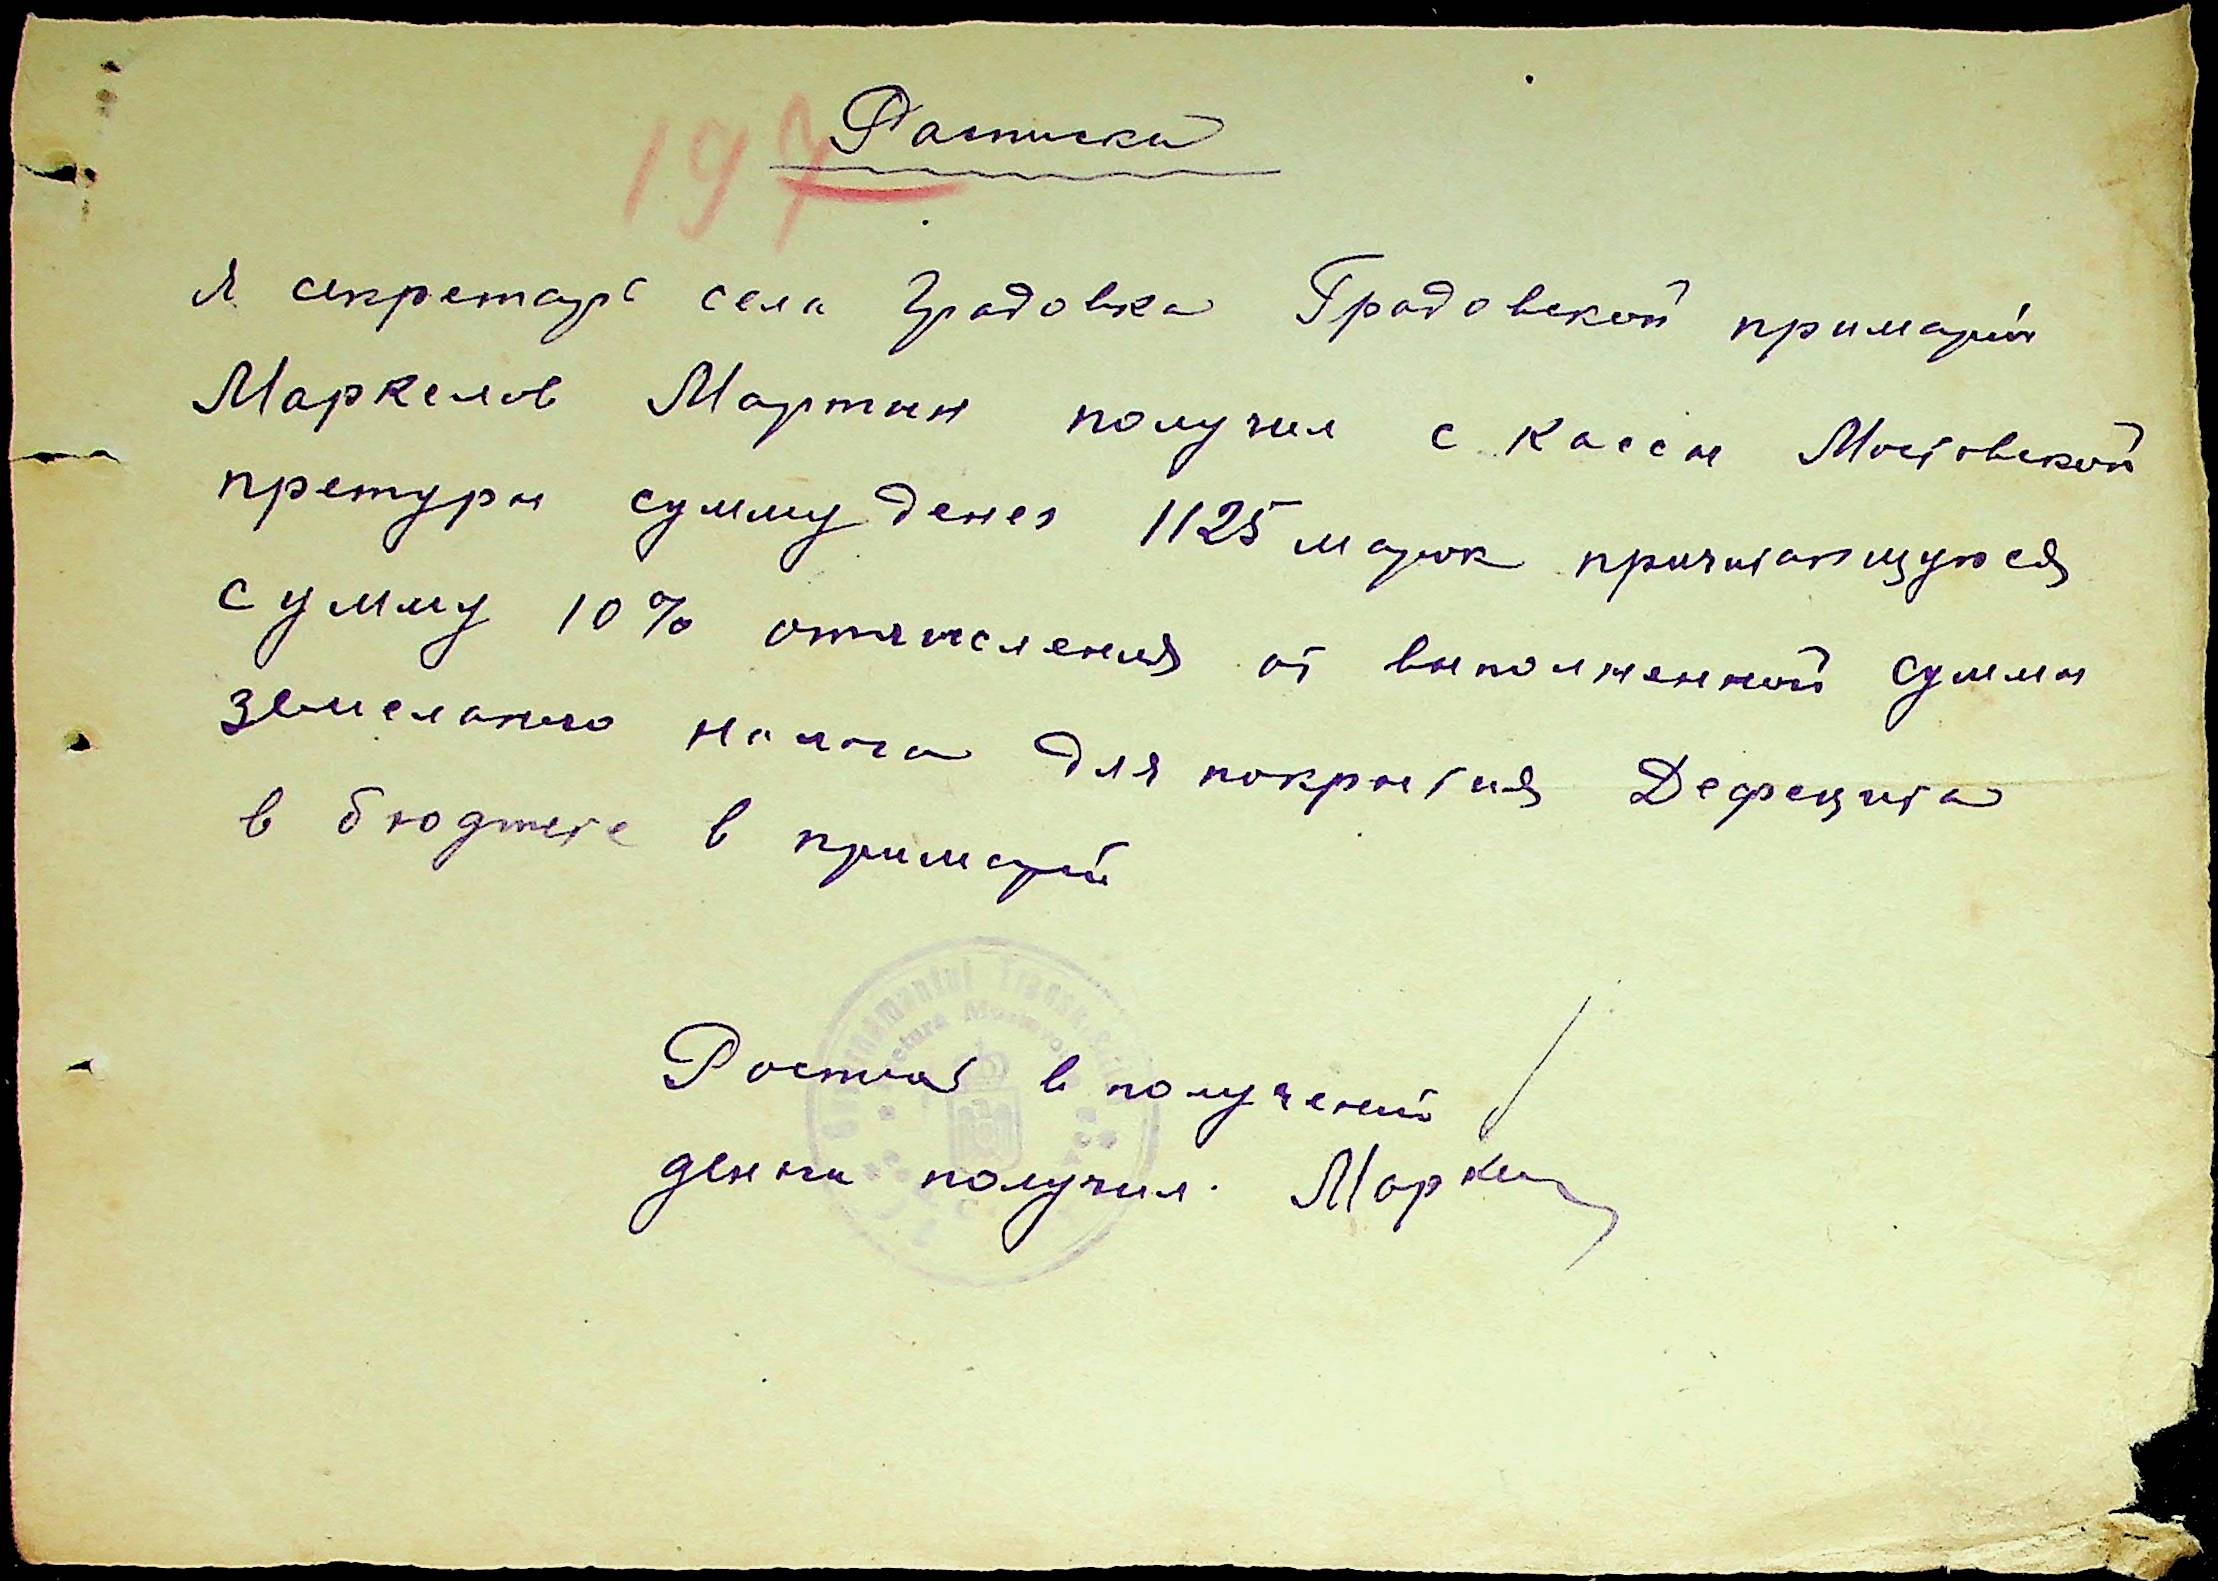 197
Расписка
Я секретарь села Градовка Градовской примарии
Маркелов Мартин получил с кассы Мостовской
претуры сумму денег 1125 марок причитающуюся
сумму 10% отчисления от выполненной суммы
земельного налога для покрытия Дефицита
в бюджете в примарии
Guvernamantul Transnistriei
Pretura Mostovoi
в получении
деньги получил. Марке